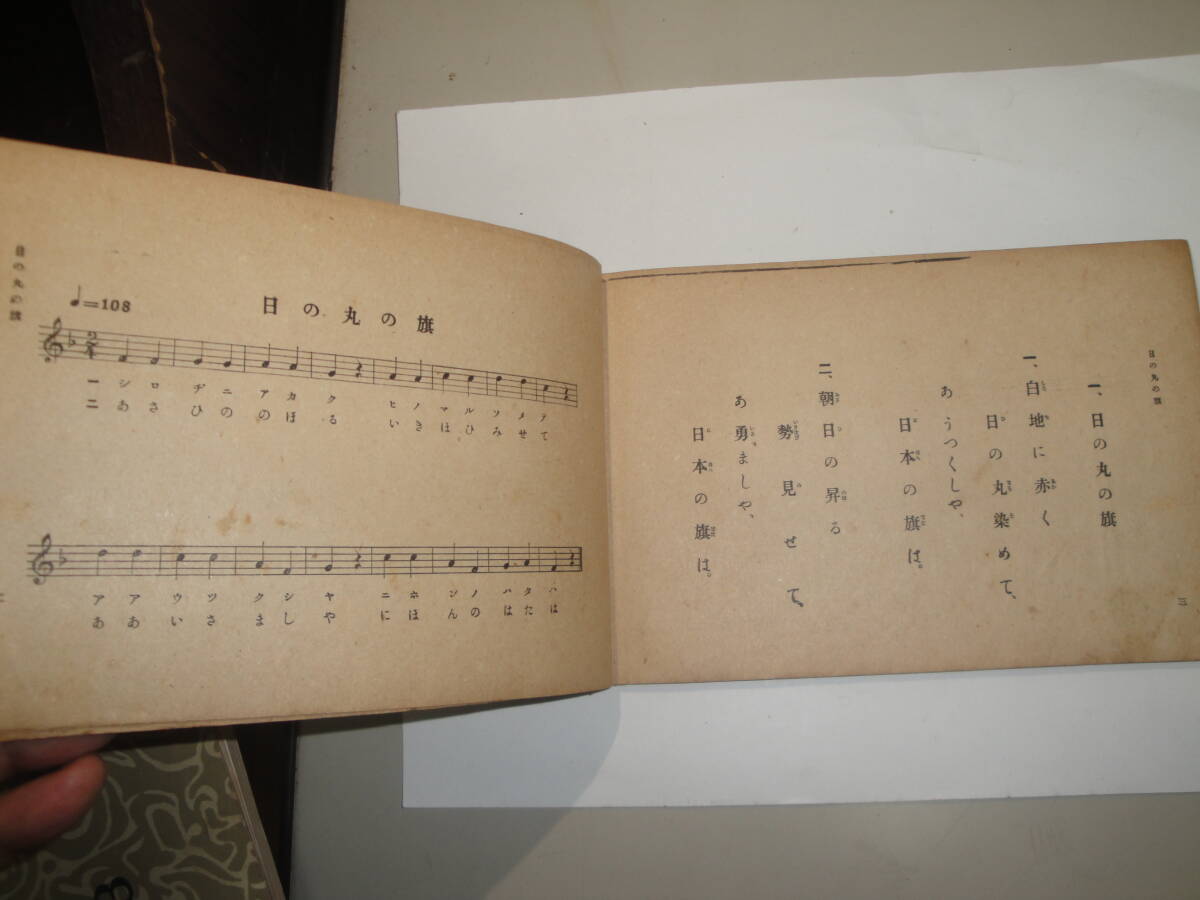 日の丸の旗
♩=108
日の丸の旗
一 シロ ヂニ アカ ク ヒノ マル ソメ テ
二 あさ ひの のぼ る いき ほひ みせ て
アア ウツ クシ ヤ ニホ ンノ ハタ ハ
ああ いさ まし や にほ んの はた は
日の丸の旗
一、日の丸の旗
一、白地に赤く
日の丸染めて、
あゝうつくしや、
日本の旗は。
二、朝日の昇る
勢見せて、
あゝ勇ましや、
日本の旗は。
三